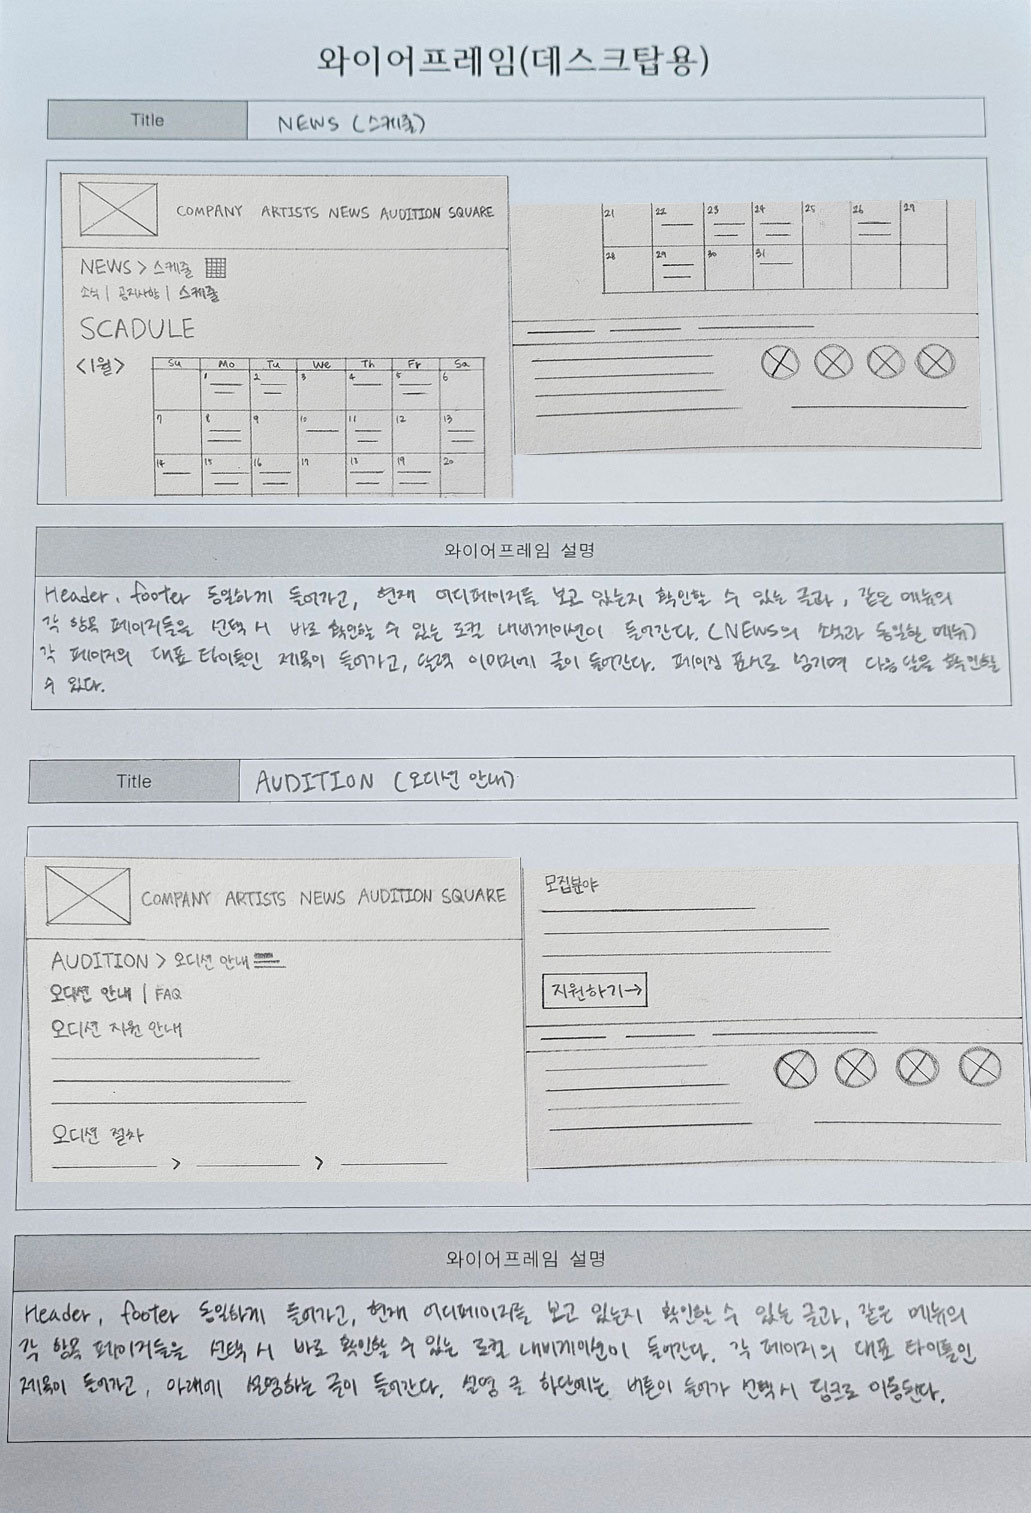 와이어프레임(데스크탑용)
Title
NEWS (스케줄)
COMPANY ARTISTS NEWS AUDITION SQUARE
NEWS > 스케줄
소식 | 공지사항 | 스케줄
SCADULE
<1월>
Su Mo Tu We Th Fr Sa
1 2 3 4 5 6
7 8 9 10 11 12 13
14 15 16 17 18 19 20
21 22 23 24 25 26 27
28 29 30 31
와이어프레임 설명
Header, footer 동일하게 들어가고, 현재 어디페이지를 보고 있는지 확인할 수 있는 글과, 같은 메뉴의
각 항목 페이지들을 선택 시 바로 확인할 수 있는 로컬 내비게이션이 들어간다. (NEWS의 소식과 동일한 메뉴)
각 페이지의 대표 타이틀인 제목이 들어가고, 달력 이미지에 글이 들어간다. 페이징 표시로 넘기며 다음 달을 확인할
수 있다.
Title
AUDITION (오디션 안내)
COMPANY ARTISTS NEWS AUDITION SQUARE
AUDITION > 오디션 안내
오디션 안내 | FAQ
오디션 지원 안내
오디션 절차
> >
모집분야
지원하기→
와이어프레임 설명
Header, footer 동일하게 들어가고, 현재 어디페이지를 보고 있는지 확인할 수 있는 글과, 같은 메뉴의
각 항목 페이지들을 선택 시 바로 확인할 수 있는 로컬 내비게이션이 들어간다. 각 페이지의 대표 타이틀인
제목이 들어가고, 아래에 설명하는 글이 들어간다. 설명 글 하단에는 버튼이 들어가 선택 시 링크로 이동된다.